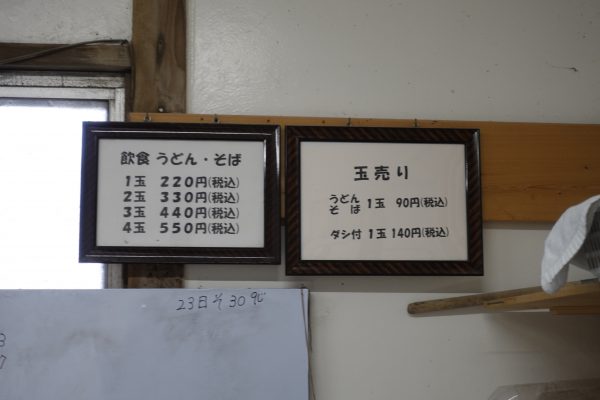 飲食 うどん・そば
1玉 220円(税込)
2玉 330円(税込)
3玉 440円(税込)
4玉 550円(税込)
玉売り
うどん
そば 1玉 90円(税込)
ダシ付 1玉 140円(税込)
23日そ30